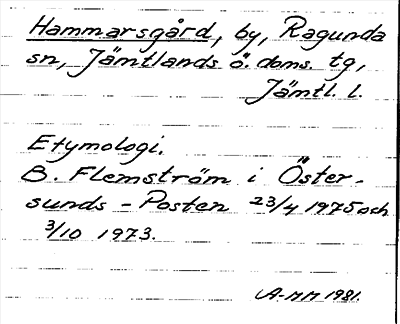 Hammarsgård, by, Ragunda
sn, Jämtlands ö. doms. tg,
Jämtl. l.
Etymologi.
B. Flemström i Öster-
sunds-Posten 23/4 1975 och
3/10 1973.
A-MM 1981.